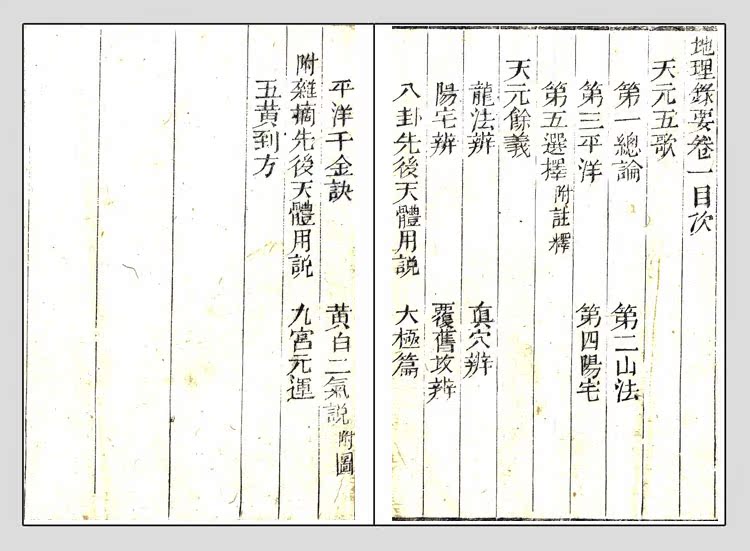 地理錄要卷一目次
天元五歌
第一總論 第二山法
第三平洋 第四陽宅
第五選擇附註釋
天元餘義
龍法辨 真穴辨
陽宅辨 覆舊攻辨
八卦先後天體用説 大極篇
平洋千金訣 黃白二氣説附圖
附雜摘先後天體用説 九宮元運
五黃到方